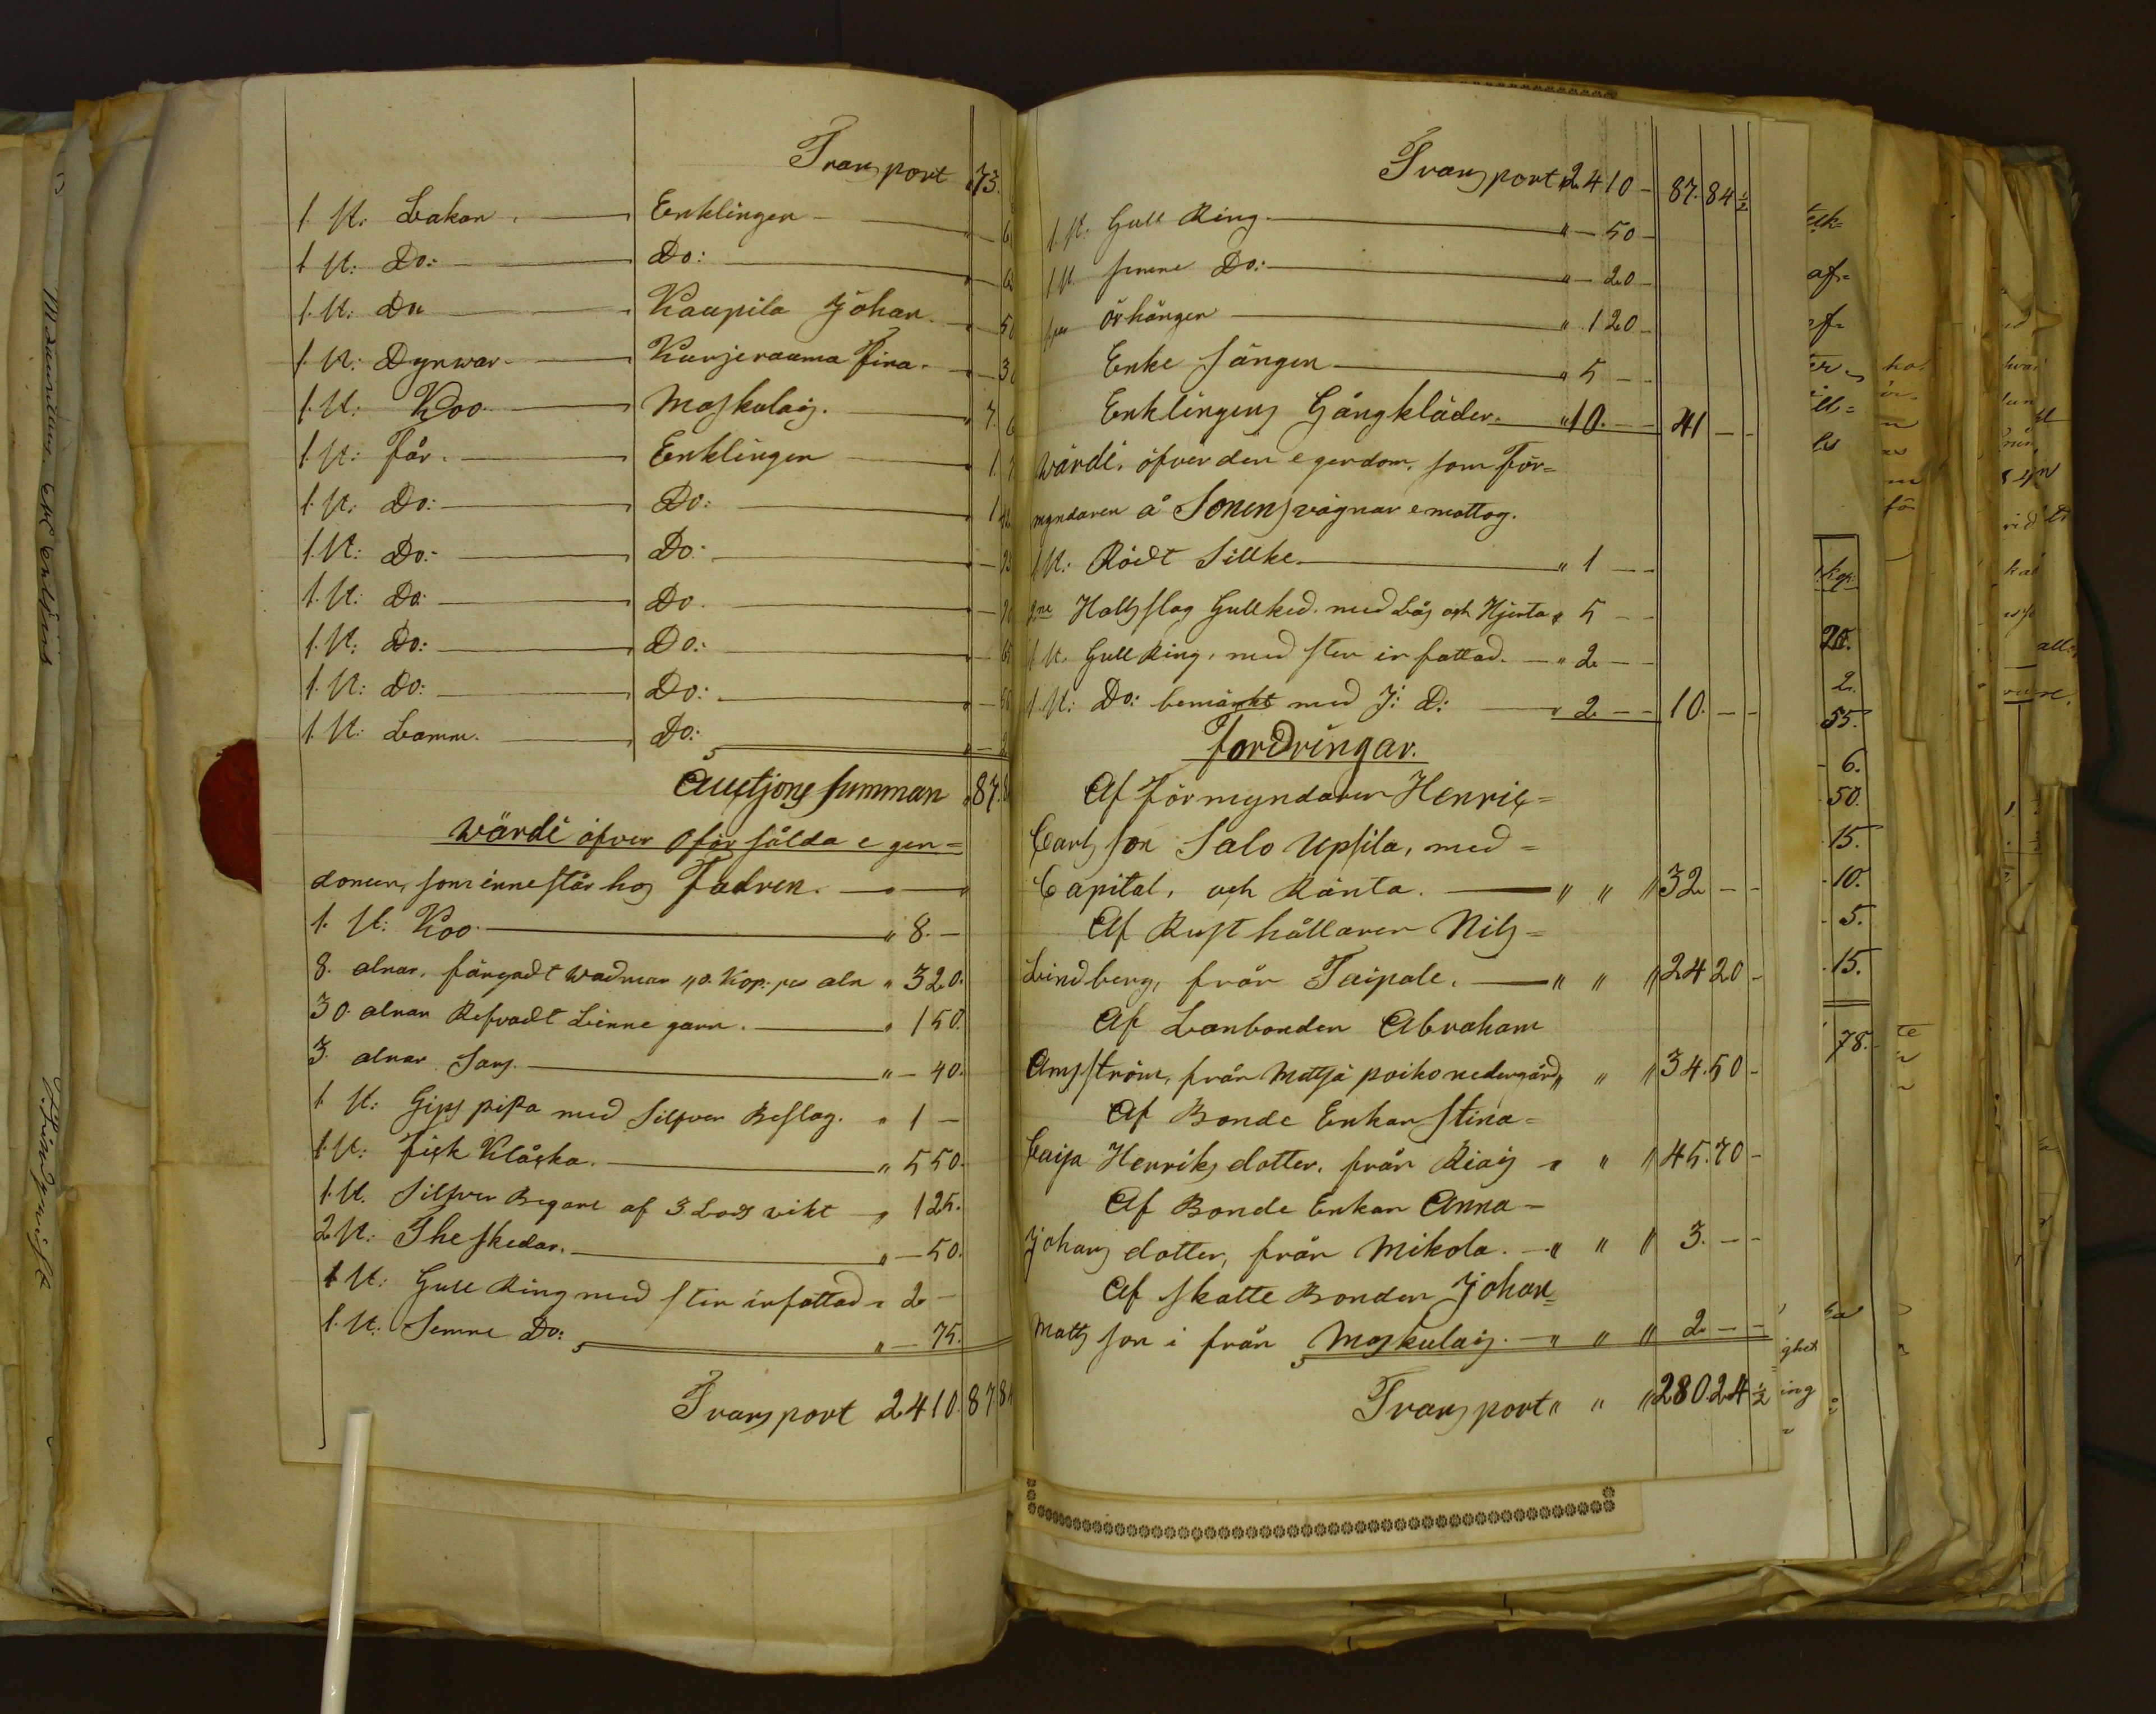 Transport 73.
1 st: Lakan. Enklingen
1 st: Do: Do:
1. st: Do Kaupila Johan
1. st: Dynwar. Kurjerauma Fina.
1. st: Koo. Maskulais. 7.
1. st: Får. Enklingen 1.
1. st: Do: Do: 1
1. st: Do: Do:
1. st: Do: Do.
1. st: Do: Do:
1. st: Do: Do:
1. st: Lamm. Do:
Auctjons summan 87.
Wärdi öfver oför sålda e gen=
domen, som inne står hos Fadren.
1. st: Koo. " 8. —
8. alnar, färgadt wadmar 40. Kop: per aln " 3 20.
30. alnar Refvadt Linne garn. " 1 50.
3. alnar Sars. " — 40.
1 st: Gips pipa med Silfver Beslag. " 1 —
1. st: Fick Klåcka. " 5 50.
1. st. Silfver Begare af 3. Lods vikt " 1 25.
2 st: The skedar. " — 50.
1 st: Gull Ring med sten infattad " 2 —
1. st: Semre Do: " — 75.
Transport 24 10. 87. 84
Transport 24 10 — 87. 84 ½
1. st. Gull Ring " — 50 —
1 st. semre Do: " — 20 —
1 par örhängen " 1 20 —
Enke sängen " 5 — —
Enklingens Gångkläder. " 10. — — 41 — —
Wärdi, öfver den e gendom, som För=
myndaren å Sonens vägnar emottog.
1 st. Rödt Sillke. " 1 — —
2ne Halls slag Gullked. med Lås och Hjerta " 5 — —
1 st. Gull Ring, med sten in fattad. — " 2 — —
1. st: Do: bemärkt med J: D: " 2 — — 10. — —
Fordringar.
Af Förmyndaren Henric=
Carls son Salo Upsila, med =
Capital, och Ränta. " " " 32 — —
Af Rust hållaren Nils =
Lindberg, från Taipale. " " " 24 20 —
Af Lanbonden Abraham
Amsström, från Mattjä poiko nedergård " " " 34. 50 —
Af Bonde Enkan Stina =
Caisa Henriks dotter, från Riais " " " 45. 70 —
Af Bonde Enkan Anna —
Johans dotter, från Mikola. — " " " 3. — —
Af skatte Bonden Johan=
Matts son i från Maskulais. — " " " 2 — —
Transport " " " 280. 24 ½
af=
kop:
20.
2.
55.
6.
50.
15.
10.
5.
15.
78.